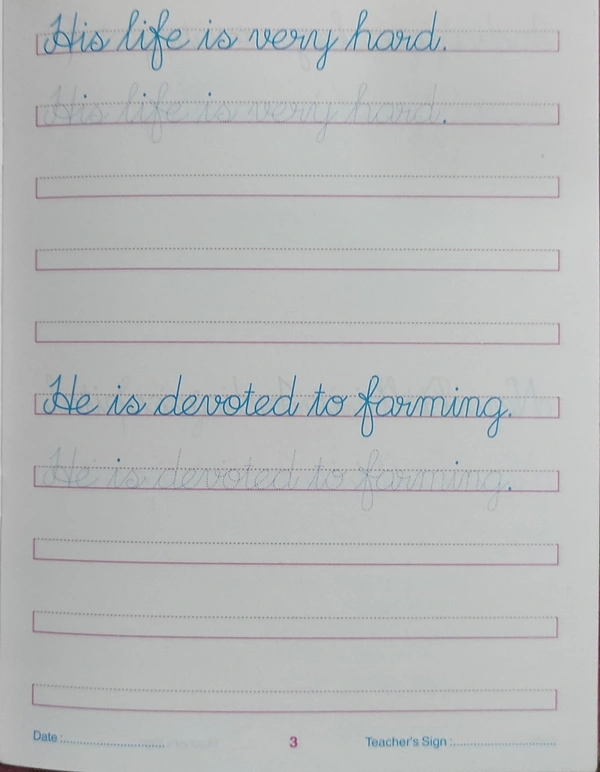 His life is very hard.
His life is very hard.
He is devoted to farming.
He is devoted to farming.
Date :.............................. 3 Teacher's Sign :..............................